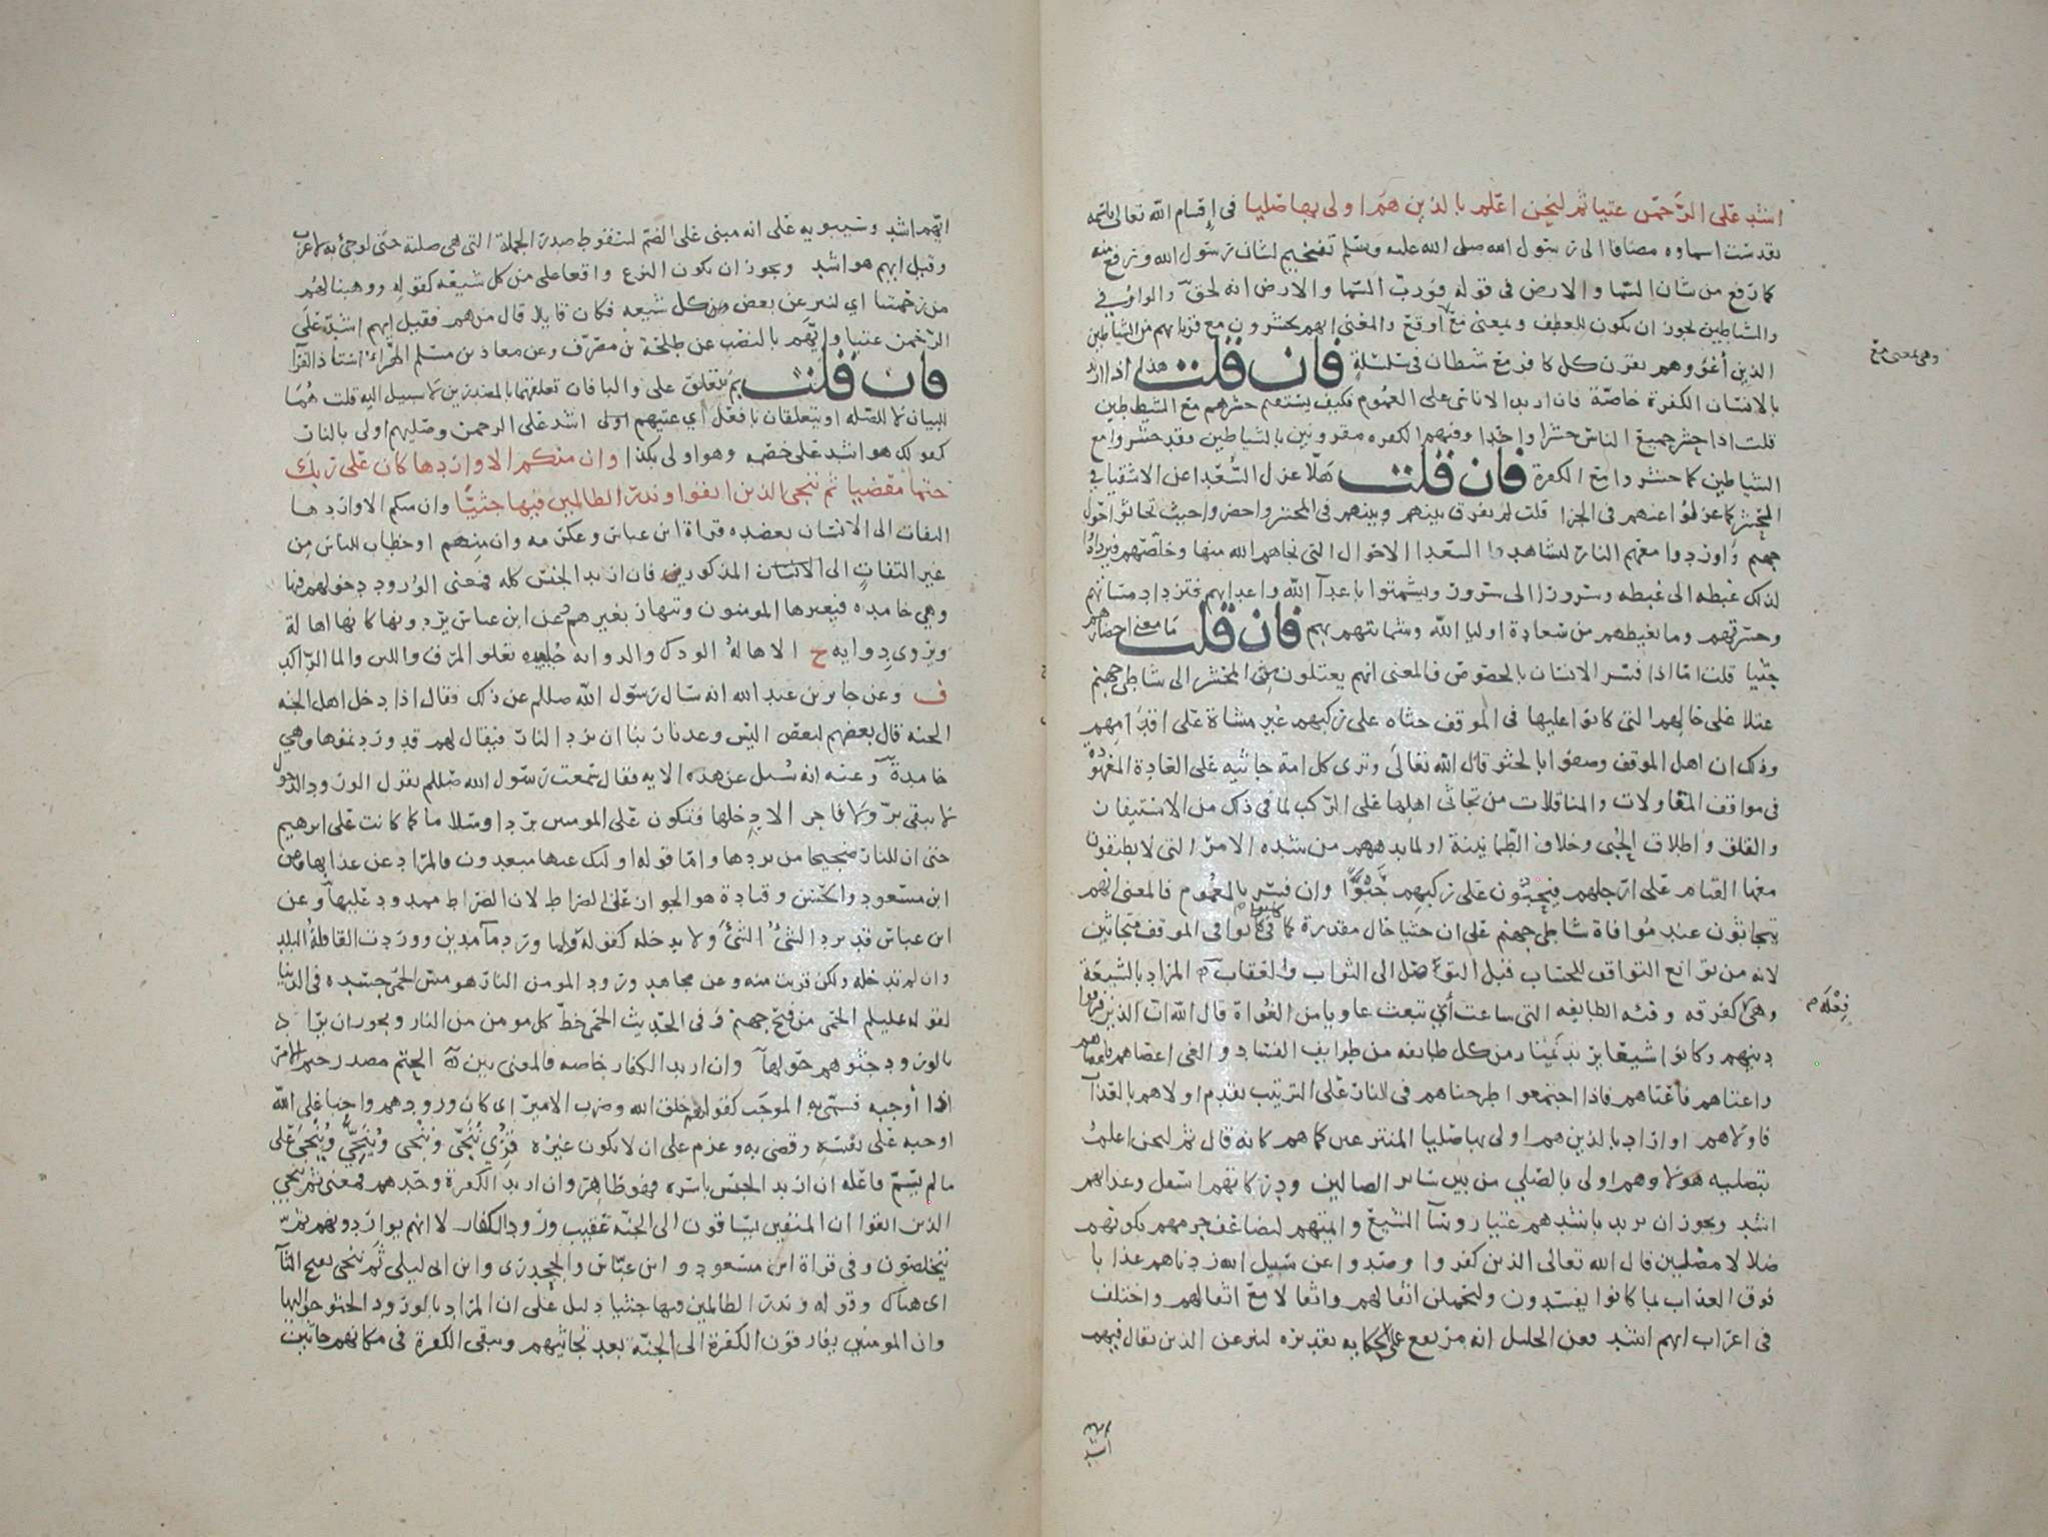 اشد على الرحمن عتيا ثم لنحن اعلم بالذين هم اولى بها صليا في إقسام الله تعالى باسمه
تقدست اسماوه مضافا الى رسول الله صلى الله عليه وسلم تفخيم لشان رسول الله ورفع منه
كما رفع من شان السما والارض في قوله فورب السما والارض انه لحق والواو في
والشياطين يجوز ان يكون للعطف وبمعنى مع اوقع والمعنى انهم يحشرون مع قرنايهم من الشياطين
وهي بمعنى مع
الذين أغووهم يقرن كل كافر مع شيطان في سلسلة فان قلت هذا اذا اريد
بالانسان الكفرة خاصّة فان اريد الاناسي على العموم فكيف يستقيم حشرهم مع الشياطين
قلت اذا حشر جميع الناس حشرا واحدا وفيهم الكفره مقرونين بالشياطين فقد حشروا مع
الشياطين كما حشروا مع الكفرة فان قلت هلّا عزل السُّعدا عن الاشقيا في
الحشر كما عزلوا عنهم في الجزا قلت لم يفرق بينهم وبينهم في المحشر واحضروا حيث تجاثوا حول
جهنم واوردوا معهم النار ليشاهد السّعدا الاحوال التي نجاهم الله منها وخلّصهم فيزدادوا
لذلك غبطه الى غبطه وسرورا الى سرور ويشمتوا باعدآ الله واعدايهم فتزداد مساتهم
وحسرتهم وما يغيظهم من سعادة اوليا الله وشماتتهم بهم فان قلت ما معنى احضارهم
جثيا قلت امّا اذا فسر الانسان بالخصوص فالمعنى انهم يعتلون من المحشر الى شاطي جهنم
عتلا على حالهم التي كانوا عليها في الموقف جثاه على ركبهم غير مشاة على اقدامهم
وذلك ان اهل الموقف وصفوا بالجثو قال الله تعالى وترى كل امة جاثيه على العادة المعهوده
في مواقف المقاولات والمناقلات من تجاثي اهلها على الركب لما في ذلك من الاستيفاز
والقلق واطلاق الجثى وخلاف الطمانينة او لما يدهمهم من شده الامر التي لا يطيقون
معها القيام على ارجلهم فيحبون على ركبهم حبوًا وان فسّر بالعموم فالمعنى انهم
يتجاثون عند موافاة شاطي جهنم على ان جثيا حال مقدرة كما كانوا في الموقف متجاثين
لانه من توابع التواقف للحساب قبل التواصّل الى الثواب والعقاب المراد بالشيعة
وهي كفرقه وفئه الطايفه التي شاعت أي تبعت غاويا من الغواة قال الله ان الذين فرقوا
فِعْلَه
دينهم وكانوا شيعا يريد نمتاز من كل طايفه من طوايف الغي والفساد اعصاهم فاعصاهم
واعتاهم فأعتاهم فاذا اجتمعوا طرحناهم في النار على الترتيب نقدم اولاهم بالعذاب
فاولاهم او اراد بالذين هم اولى بها صليا المنتزعين كما هم كانه قال ثم لنحن اعلم
بتصليه هولا وهم اولى بالصّلي من بين ساير الصالين ودركاتهم اسفل وعذابهم
اشد ويجوز ان يريد باشدهم عتيا روسآ الشيع وايمتهم لتضاعف جرمهم بكونهم
ضلالا مضلين قال الله تعالى الذين كفروا وصدوا عن سبيل الله زدناهم عذابا
فوق العذاب بما كانوا يفسدون وليحملن اثقالهم واثقالا مع اثقالهم واختلف
في اعراب ايهم اشد فعن الخليل انه مرتفع على الحكايه تقديره لننزعن الذين يقال فيهم
ايهم
اشد
ايهم اشد وسيبويه على انه مبني على الضم لسقوط صدر الجملة التي هي صلته حتى لو جئ به لاعرب
وقيل ايهم هو اشد ويجوز ان يكون النزع واقعا على من كل شيعه كقوله ووهبنا لهم
من رحمتنا اي لننزعن بعض كل شيعه فكان قايلا قال من هم فقيل ايهم اشد على
الرحمن عتيا وايّهم بالنصب عن طلحة بن مصرّف وعن معاذ بن مسلم الهراء استاذ الفرّا
فان قلت بم يتعلق على والبا فان تعلقهما بالمصدرين لا سبيل اليه قلت هُمَا
للبيان لا للصّله او يتعلقان بافعل أي عتيهم اشد على الرحمن وصليهم اولى بالنار
كقولك هو اشد على خصمه وهو اولى بكذا وان منكم الا واردها كان على ربك
حتما مقضيا ثم ننجي الذين اتقوا ونذر الظالمين فيها جثيًّا وان منكم الا واردها
التفات الى الانسان يعضده قراة ابن عباس وعكرمه وان منهم او خطاب للناس من
غير التفات الى الانسان المذكور فان اريد الجنس كله فمعنى الورود دخولهم فيها
وهي خامده فيعبرها المومنون وتنهار بغيرهم عن ابن عباس يردونها كانها اهالة
وروى دوايه ح الاهالة الودك والدوايه جليده تعلو المرق واللبن والما الراكد
ف وعن جابر بن عبد الله انه سال رسول الله صلعم عن ذلك فقال اذا دخل اهل الجنه
الجنه قال بعضهم لبعض اليس وعدنا ربنا ان نرد النار فيقال لهم قد وردتموها وهي
خامدة وعنه انه سُيل عن هذه الايه فقال سمعت رسول الله صللم يقول الورود الدخول
لا يبقى برّ ولا فاجر الا دخلها فتكون على المومنين بردا وسلاما كما كانت على ابرهيم
حتى ان للنار ضجيجا من بردها وامّا قوله اوليك عنها مبعدون فالمراد عن عذابها وعن
ابن مسعود والحسن وقتادة هو الجواز على الصراط لان الصراط ممدود عليها وعن
ابن عباس قد يرد الشئُ الشئَ ولا يدخله كقوله ولما ورد مآ مدين ووردت القافلة البلد
وان لم تدخله ولكن قربت منه وعن مجاهد ورود المومن النار هو مسّ الحمّى جسده في الدنيا
لقوله عليلم الحمى من فيح جهنم وفي الحديث الحمى حظّ كل مومن من النار ويجوز ان يراد
بالورود جثوهم حولها وان اريد الكفار خاصه فالمعنى بين الحتم مصدر حتم الامر
اذا أوجبه فسمى به الموجَب كقولهم خلق الله وضرب الامير اي كان ورودهم واجبا على الله
اوجبه على نفسه وقضى به وعزم على ان لا يكون غيره قري نُنَجّي ونُنْجي ويُنَجِّي ويُنْجَى على
ما لم يسم فاعله ان اريد الجنس باسره فهو ظاهر وان اريد الكفرة وحدهم فمعنى ثم ننجي
الذين اتقوا ان المتقين يساقون الى الجنه عقيب ورود الكفار لا انهم يواردونهم ثم
يتخلصون وفي قراة ابن مسعود وابن عبّاس والجحدري وابن ابي ليلى ثَم ننجي بفتح الثآ
اي هناك وقوله ونذر الظالمين فيها جثيا دليل على ان المراد بالورود الجثو حواليها
وان المومنين يفارقون الكفرة الى الجنّة بعد تجاثيهم وتبقى الكفرة في مكانهم جاثين